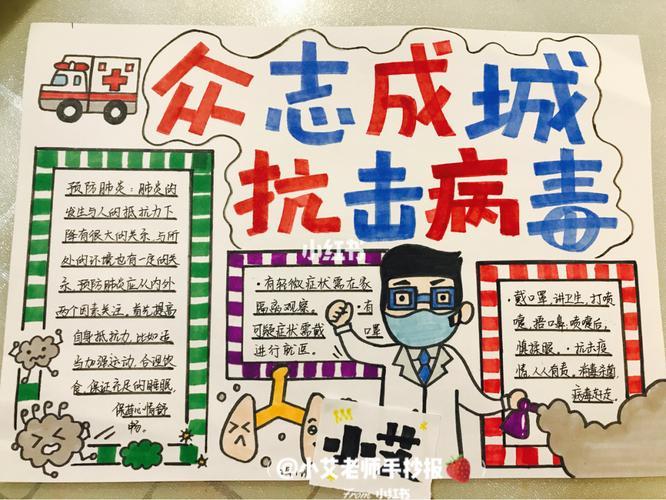 众志成城
抗击病毒
预防肺炎：肺炎的
发生与人的抵抗力下
降有很大的关系，与所
处的环境也有一定的关
系，预防肺炎应从内外
两个因素关注，首先提高
自身抵抗力，比如适
当加强运动，合理饮
食，保证充足的睡眠，
保持心情舒
畅。
小红书
·有轻微症状需在家
隔离观察。·有
可疑症状需戴口罩
进行就医。
·戴口罩，讲卫生，打喷
嚏，捂口鼻，喷嚏后，
慎揉眼。·抗击疫
情，人人有责，消毒杀菌，
病毒赶走。
小艾
@小艾老师手抄报
From 小红书